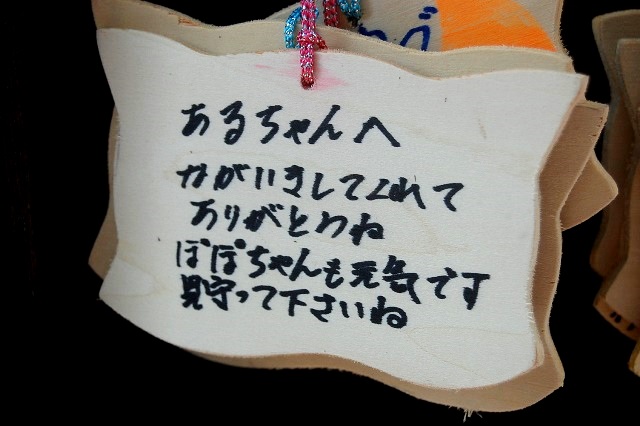 あるちゃんへ
ながいきしてくれて
ありがとうね
ぽぽちゃんも元気です
見守って下さいね